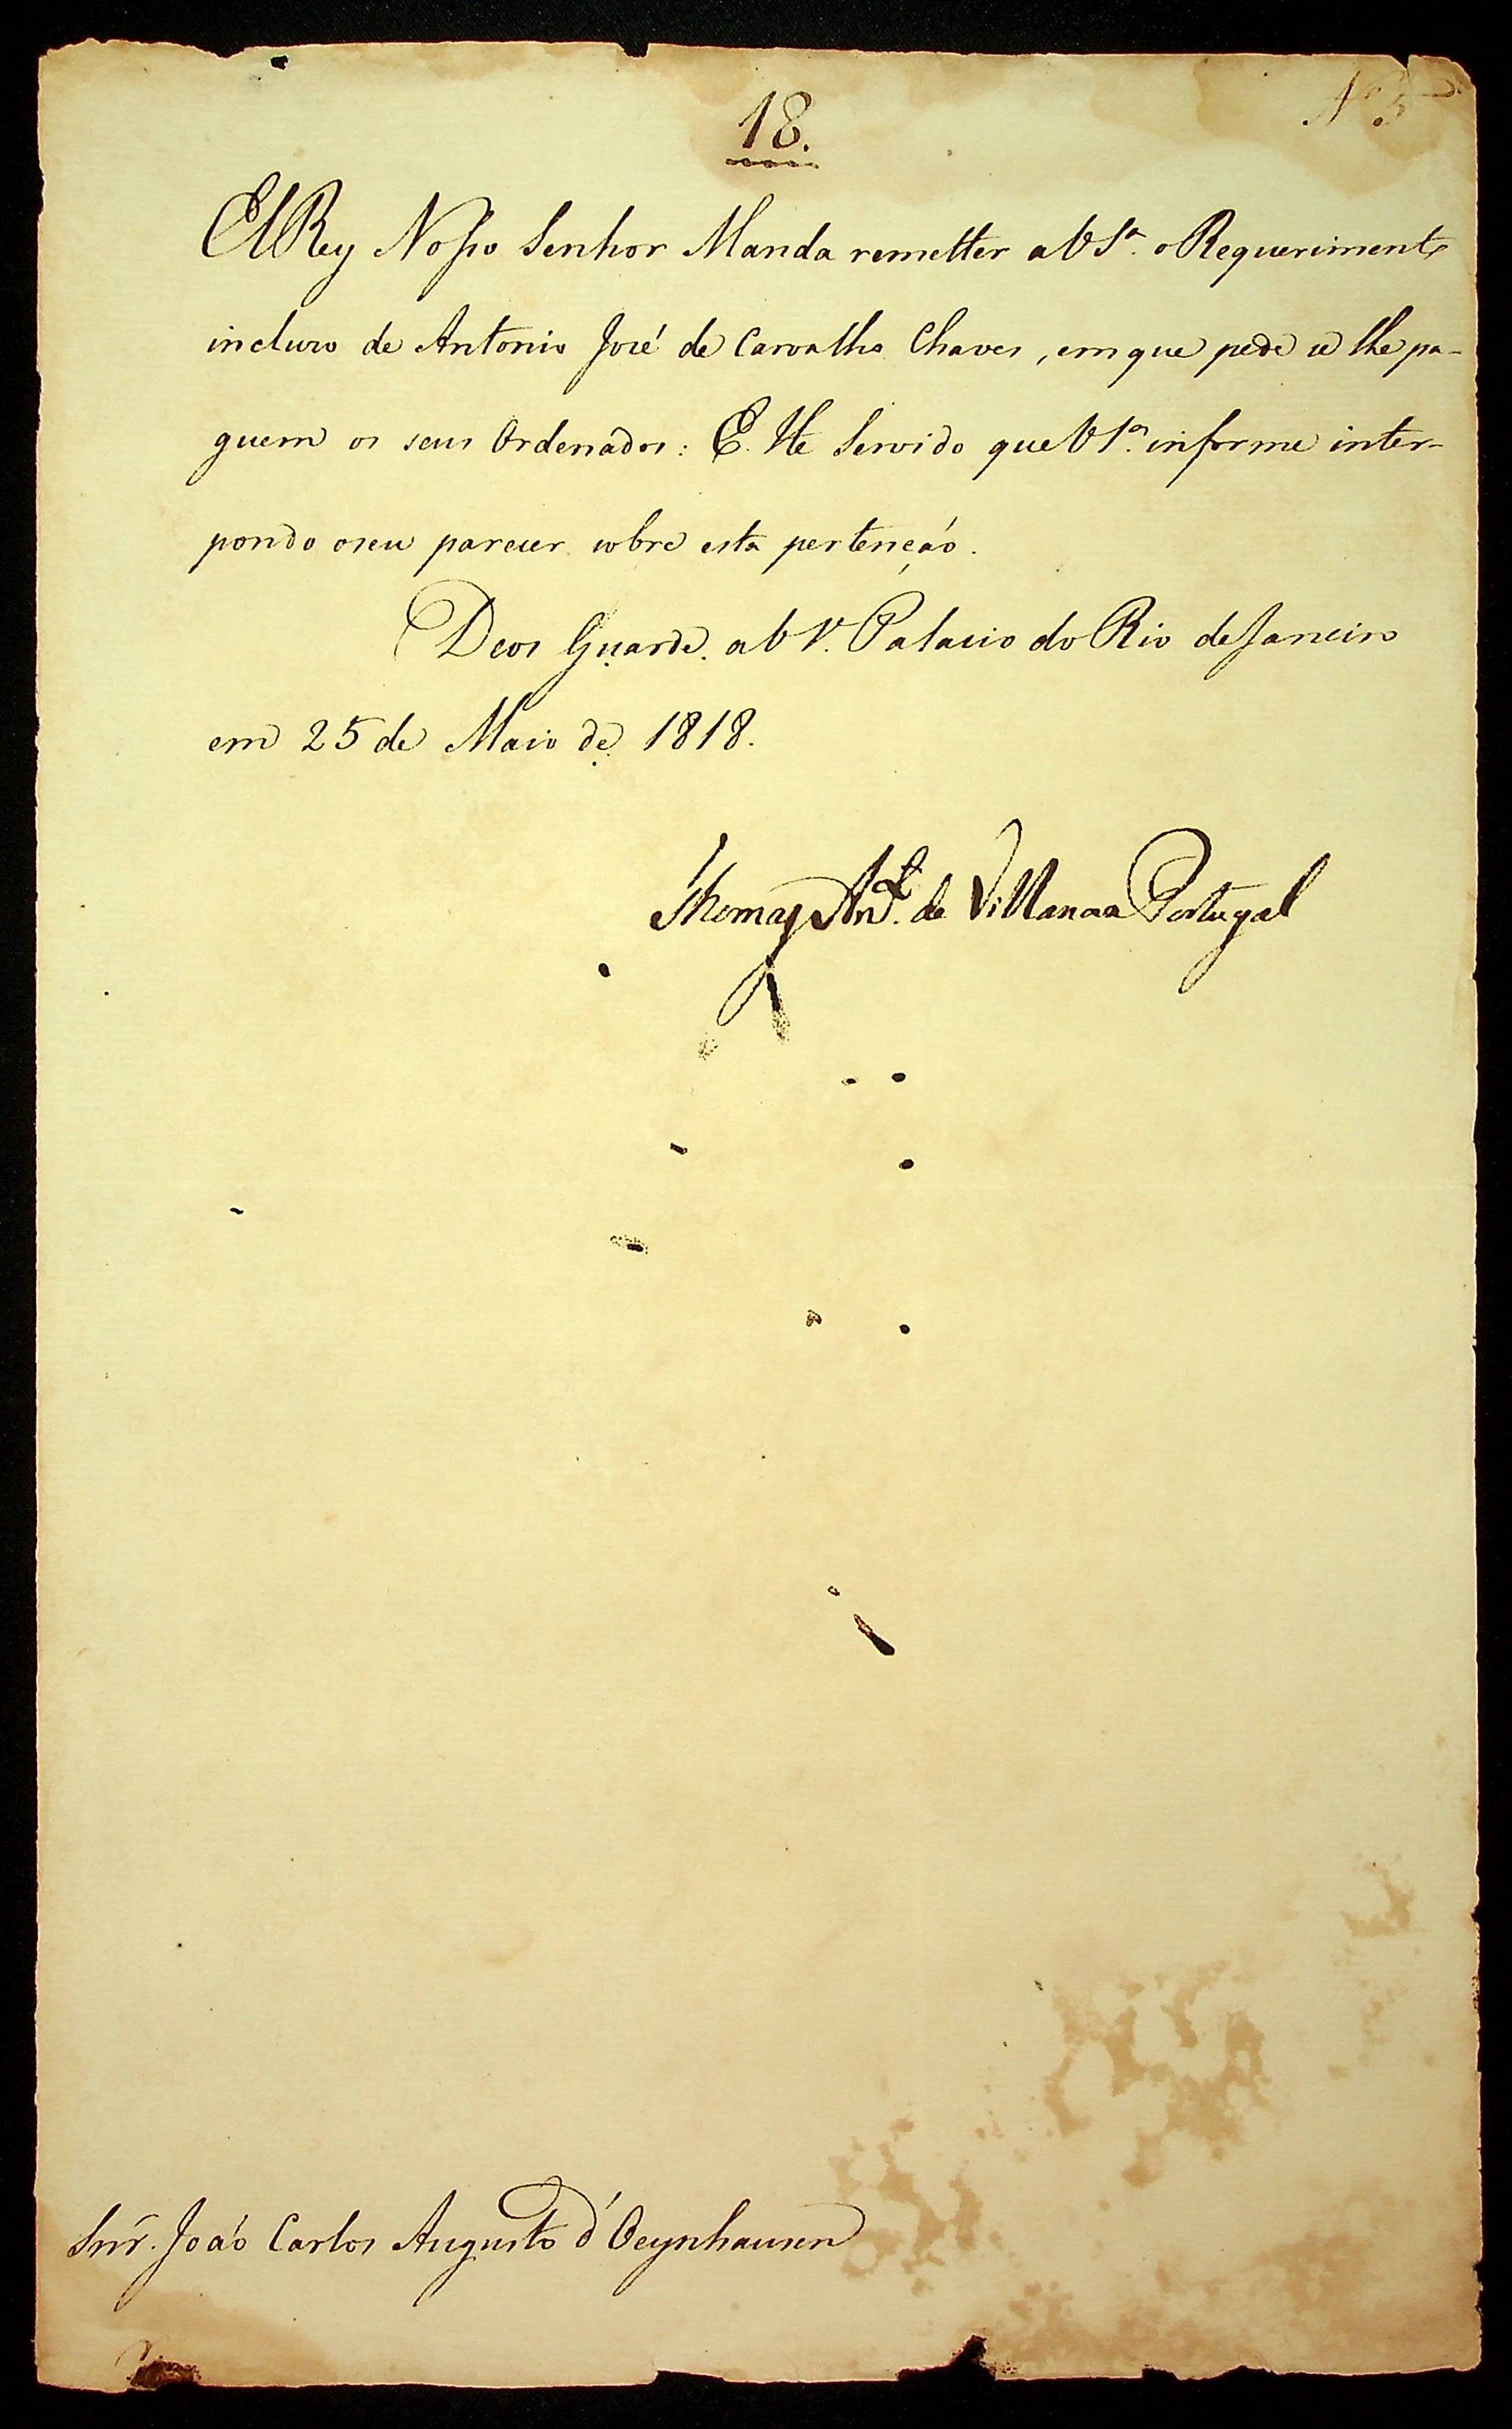 18.
Nº 5
ElRey Nosso Senhor Manda remetter a VSª. o Requerimento
incluso de Antonio José de Carvalho Chaves, em que pede se lhe pa-
guem os seus Ordenados: E He Servido que VSª. informe inter-
pondo o seu parecer sobre esta pertenção.
Deos Guarde a VSª. Palacio do Rio de Janeiro
em 25 de Maio de 1818.
Thomaz Antº. de Villanova Portugal
Snr. João Carlos Augusto d'Oeynhausen